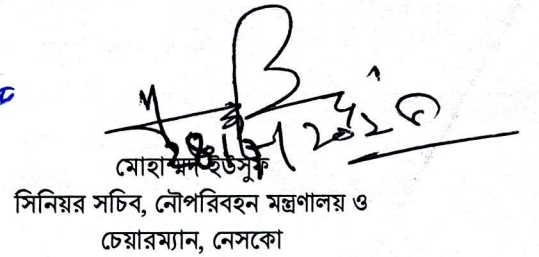 মোহাম্মদ ইউসুফ
সিনিয়র সচিব, নৌপরিবহন মন্ত্রণালয় ও
চেয়ারম্যান, নেসকো